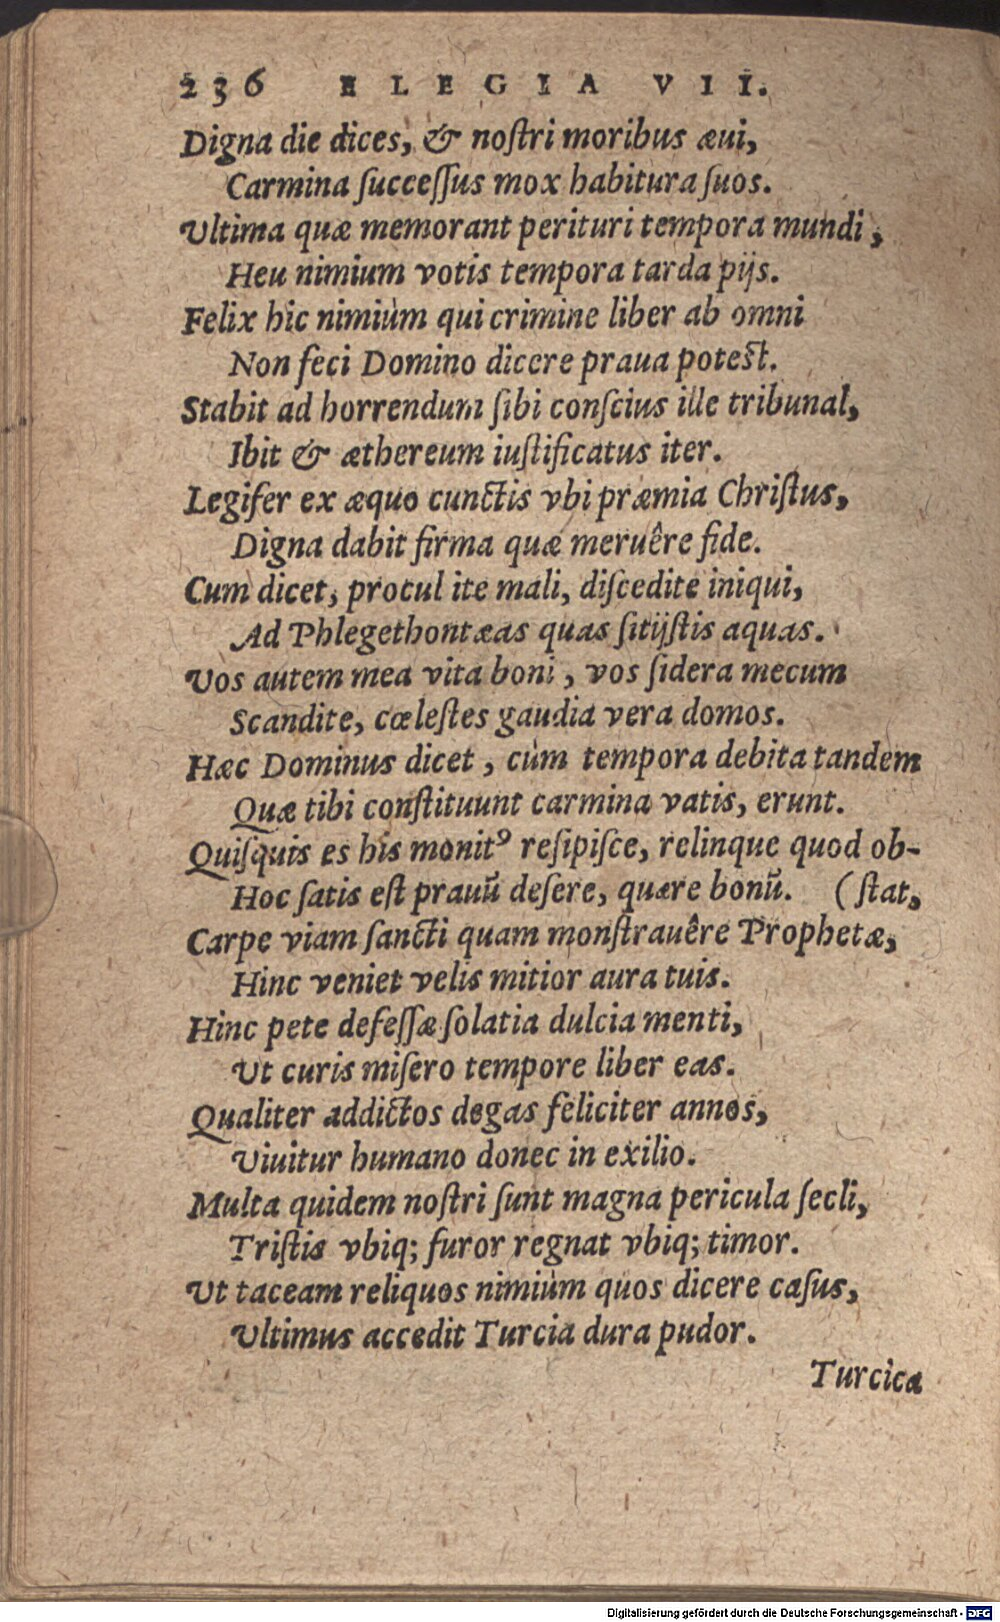 236 ELEGIA VII.
Digna die dices, & noſtri moribus æui,
Carmina ſucceſſus mox habitura ſuos.
Vltima quæ memorant perituri tempora mundi,
Heu nimium votis tempora tarda pijs.
Felix hic nimiùm qui crimine liber ab omni
Non feci Domino dicere praua poteſt.
Stabit ad horrendum ſibi conſcius ille tribunal,
Ibit & æthereum iuſtificatus iter.
Legifer ex æquo cunctis vbi præmia Chriſtus,
Digna dabit firma quæ meruêre fide.
Cum dicet, procul ite mali, diſcedite iniqui,
Ad Phlegethontæas quas ſitijſtis aquas.
Vos autem mea vita boni, vos ſidera mecum
Scandite, cœleſtes gaudia vera domos.
Hæc Dominus dicet, cùm tempora debita tandem
Quæ tibi conſtituunt carmina vatis, erunt.
Quiſquis es his monitꝰ reſipiſce, relinque quod ob-
Hoc ſatis eſt prauū deſere, quære bonū. (ſtat,
Carpe viam ſancti quam monſtrauêre Prophetæ,
Hinc veniet velis mitior aura tuis.
Hinc pete defeſſæ ſolatia dulcia menti,
Vt curis miſero tempore liber eas.
Qualiter addictos degas feliciter annos,
Viuitur humano donec in exilio.
Multa quidem noſtri ſunt magna pericula ſecli,
Triſtis vbiq; furor regnat vbiq; timor.
Vt taceam reliquos nimiùm quos dicere caſus,
Vltimus accedit Turcia dura pudor.
Turcica
Digitalisierung gefördert durch die Deutsche Forschungsgemeinschaft - DFG